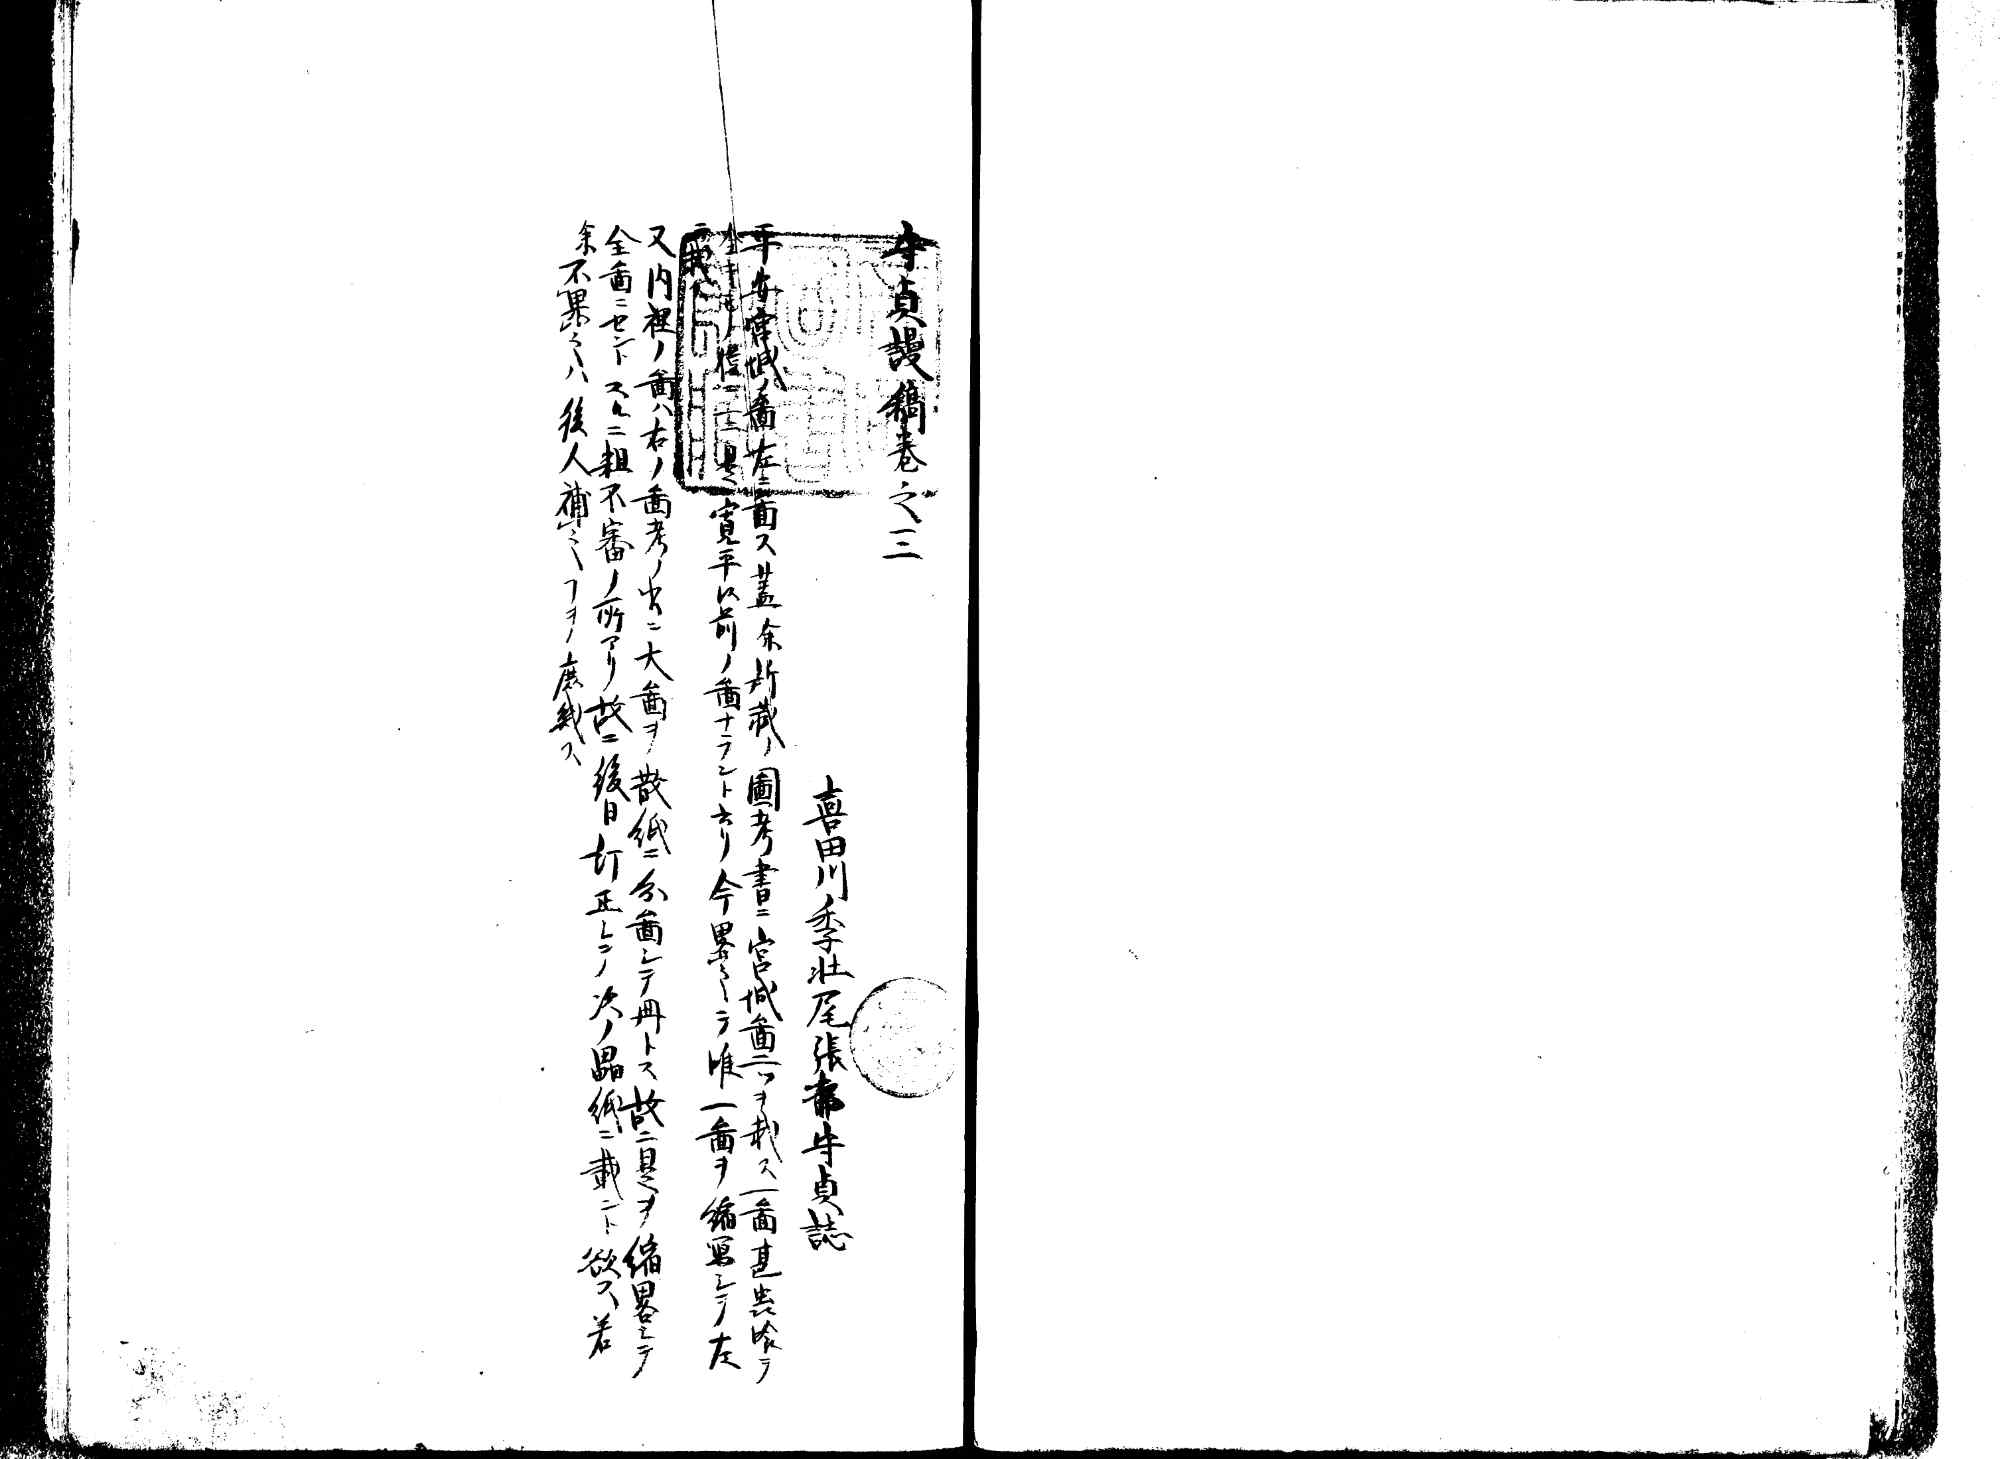 守貞謾稿巻之三
喜田川季壮尾張 守貞誌
平安宮城ノ啚左ニ啚ス蓋余所蔵ノ圖考書ニ宮城啚二ツヲ載ス一啚甚虫喰ラ
全キモノ僅ニ二三是ヲ寛平以前ノ啚ナラント云リ今畧之テ唯一啚ヲ縮冩シテ左
ニ載ス
又内裡ノ啚ハ右ノ啚考ノ中ニ大啚ヲ散紙ニ分啚シテ冊トス故ニ是ヲ縮畧シテ
全啚ニセントスルニ粗不審ノ所アリ故ニ後日訂正シテ次ノ 紙ニ載ント欲ス若
余不果之ハ後人補之ヿヲ庶幾ス